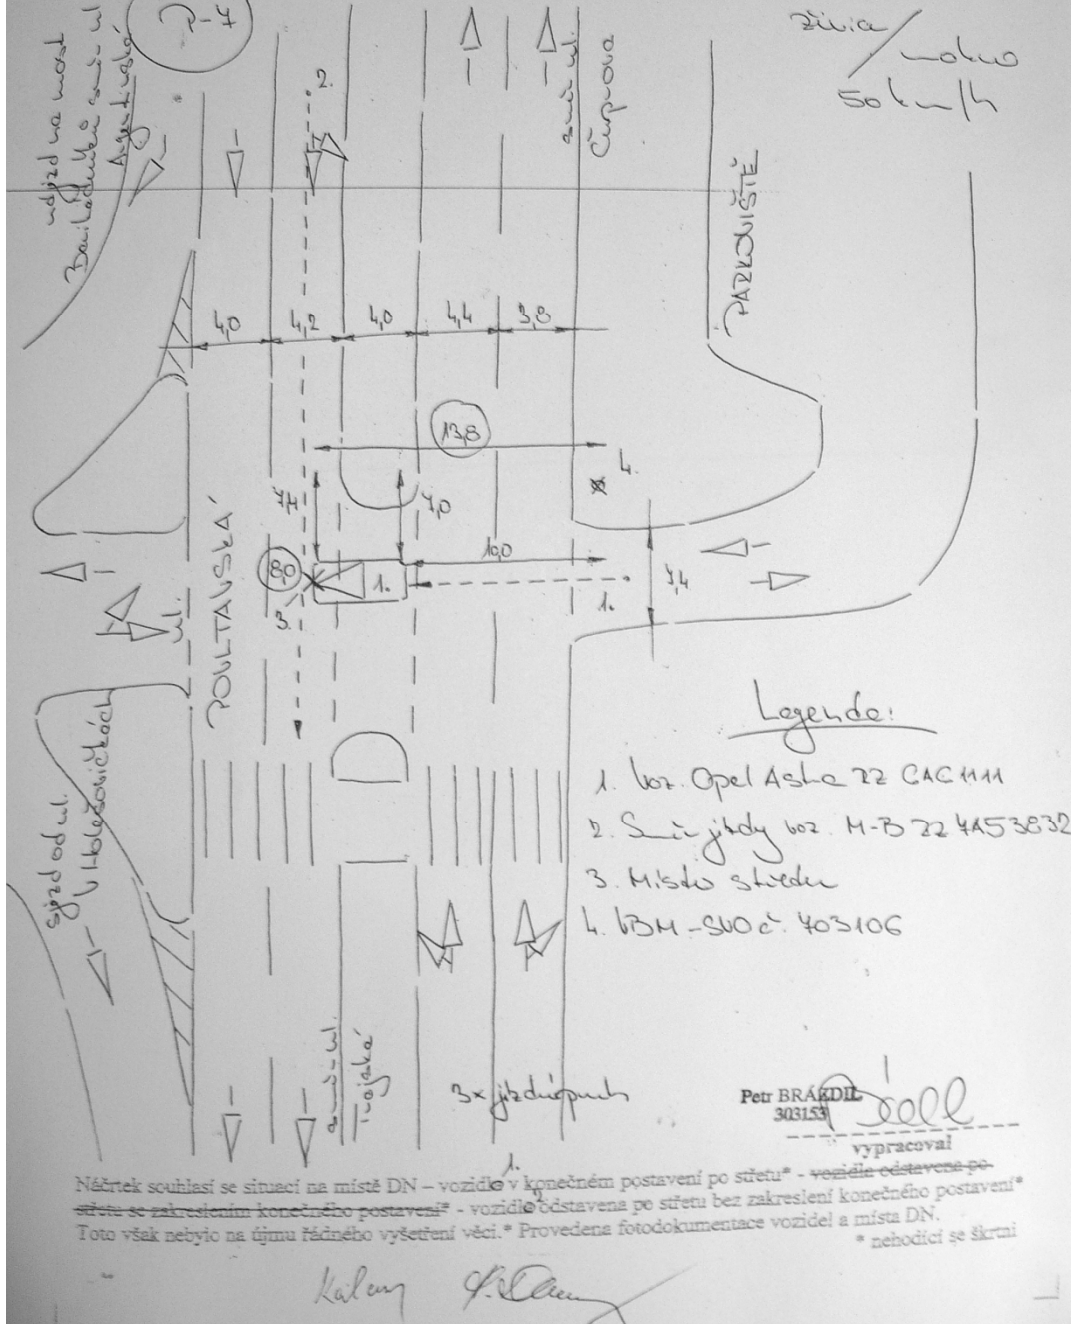 P-7
živice/mokro
50 km/h
vjezd na most
Barikádníků směr ul.
Argentinská
2.
směr ul.
Čuprova
PARKOVIŠTĚ
4,0 4,2 4,0 4,4 3,8
13,8
4.
7,4
7,0
10,0
8,0
1.
1.
3.
7,4
ul.
POVLTAVSKÁ
sjezd od ul.
V Holešovičkách
Legenda:
1. voz. Opel Astra RZ CAC1111
2. Směr jízdy voz. M-B RZ 4A53832
3. Místo střetu
4. VBM - SVO č. 703106
směr ul.
Trojská
3x jízdní pruh
Petr BRÁZDIL
303153
vypracoval
1.
Náčrtek souhlasí se situací na místě DN – vozidlo v konečném postavení po střetu* - vozidla odstavena po
střetu se zakreslením konečného postavení* - vozidlo 2 odstavena po střetu bez zakreslení konečného postavení*
Toto však nebylo na újmu řádného vyšetření věci.* Provedena fotodokumentace vozidel a místa DN.
* nehodící se škrtni